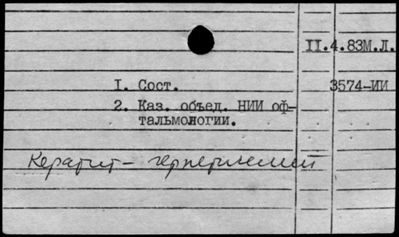 II.4.83М.Л.
I. Сост. 3574-ИИ
2. Каз. объед. НИИ оф-
тальмологии.
Кератит – герпетический